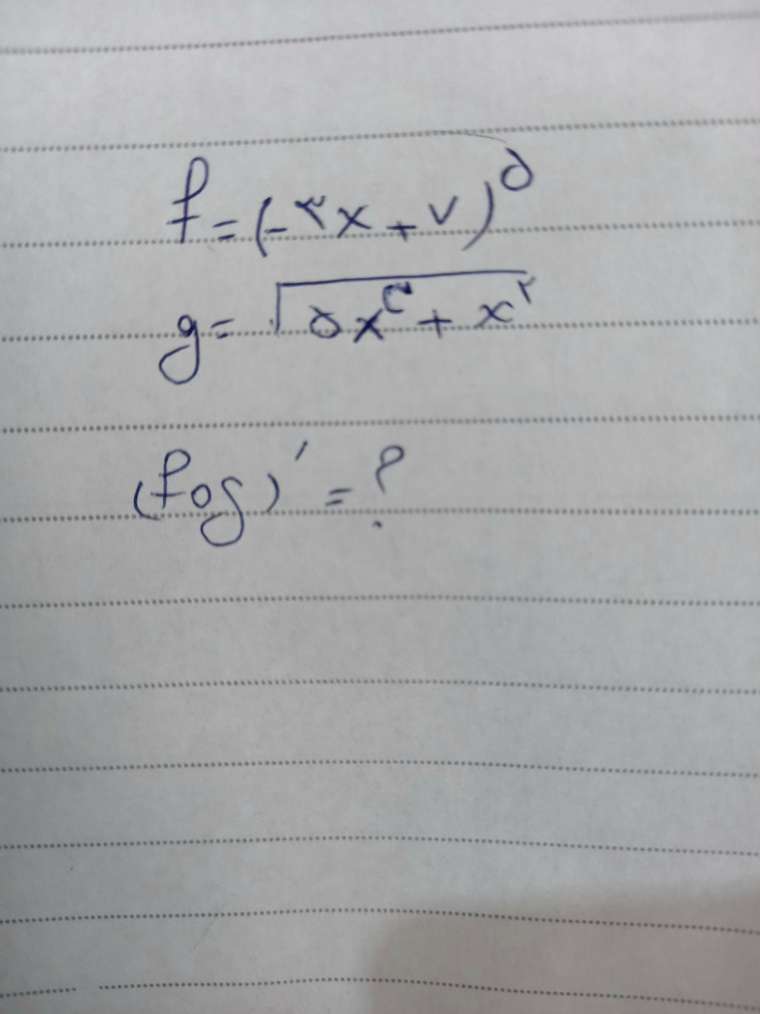 f = (-۲x + ۷)^۵
g = √(۵x^۳ + x^۲)
(fog)' = ?